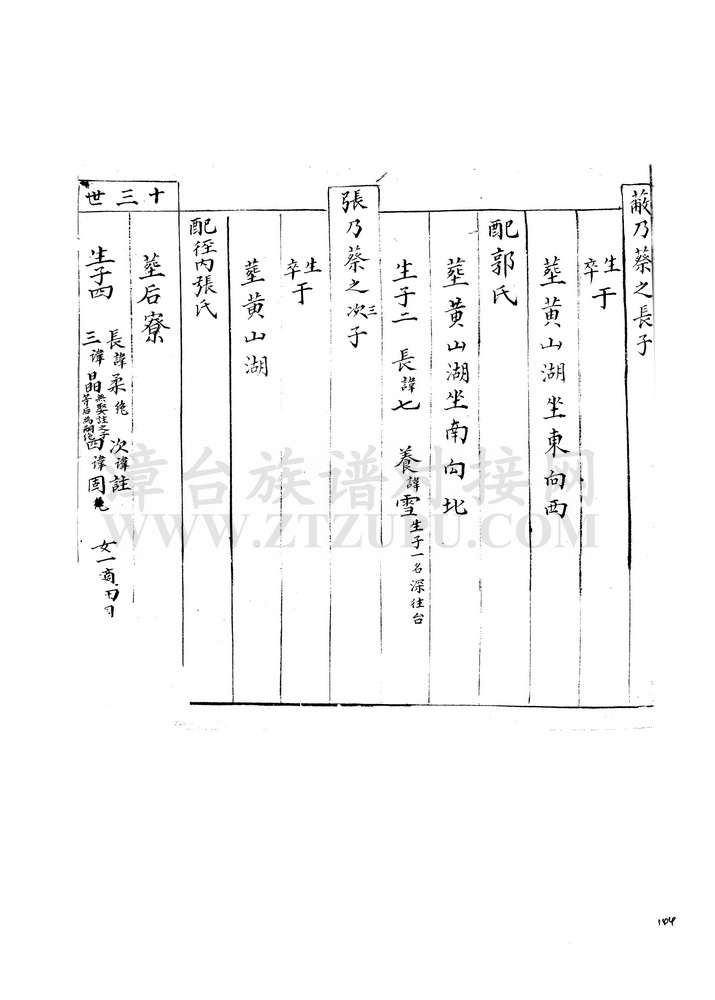 蔽乃蔡之長子
生
卒于
墓黄山湖坐東向西
配郭氏
墓黄山湖坐南向北
生子二 長諱七 養諱雪生子一名深往台
張乃蔡之次三子
生
卒于
墓黄山湖
配徑內張氏
十三世
墓后寮
生子四 長諱柔绝 次諱註
三諱晶無娶註之子 四諱固 女一適
漳台族谱对接网
WWW.ZTZUPU.COM
104